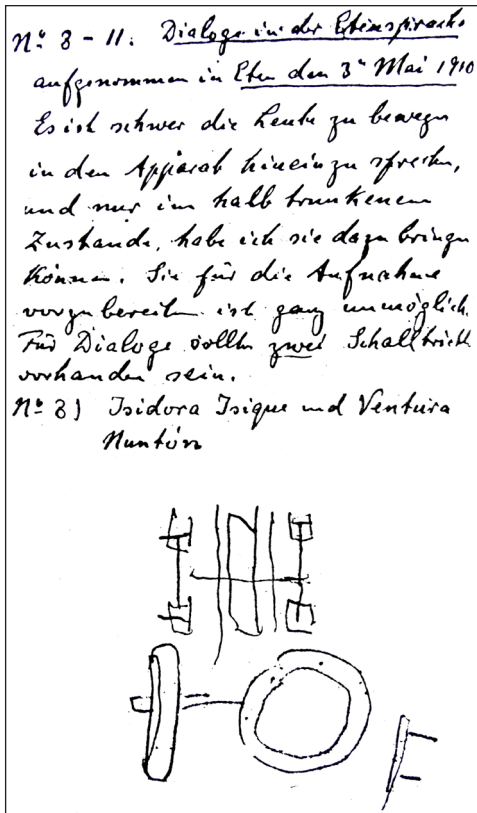 Nº 8 - 11. Dialoge in der Etensprache
aufgenommen in Eten den 3n Mai 1910
Es ist schwer die Leute zu bewegen
in den Apparat hineinzusprechen,
und nur im halb trunkenem
Zustande, habe ich sie dazu bringen
können. Sie für die Aufnahme
vorzubereiten ist ganz unmöglich.
Für Dialoge sollten zwei Schalltrichter
vorhanden sein.
Nº 8) Isidora Isique und Ventura